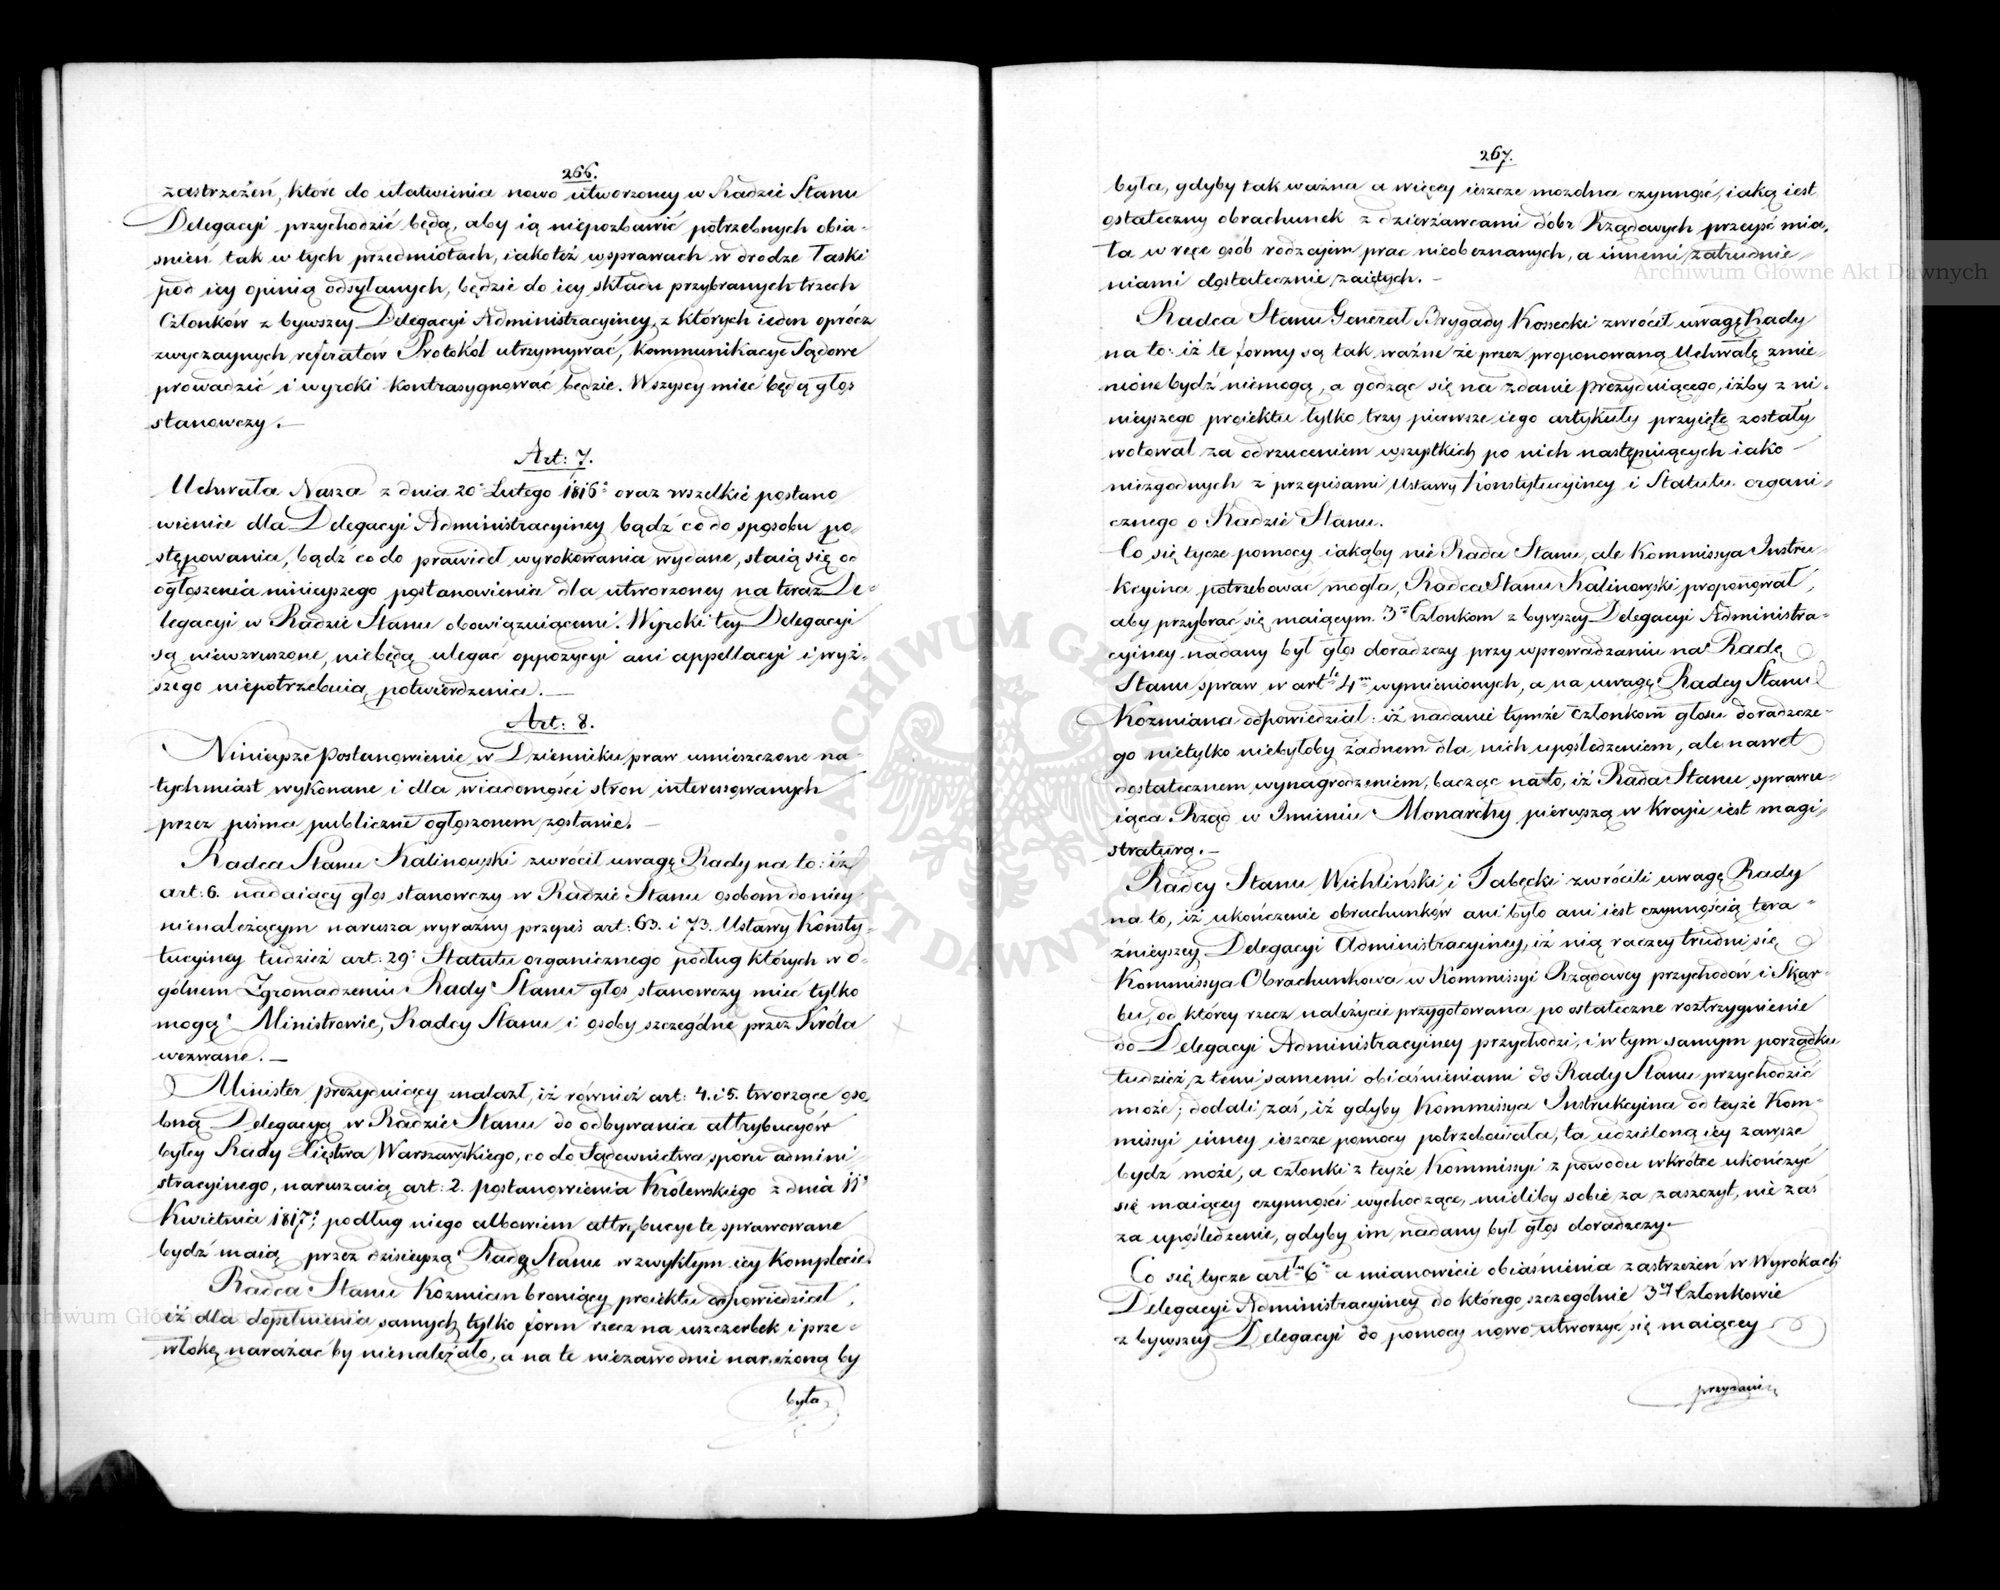 266.
zastrzeżeń, które do ułatwienia nowo utworzoney w Radzie Stanu
Delegacyi przychodzić będą, aby ią niepozbawić potrzebnych obia-
śnień tak w tych przedmiotach, iakoteż w sprawach w drodze Łaski
pod iey opinią odsyłanych, będzie do iey składu przybranych trzech
Członków z bywszey Delegacyi Administracyiney, z których ieden oprócz
zwyczaynych referatów Protokół utrzymywać, kommunikacye Sądowe
prowadzić i wyroki kontrasygnować będzie. Wszyscy mieć będą głos
stanowczy. —
Art: 7.
Uchwała Nasza z dnia 20° Lutego 1816° oraz wszelkie postano
wienia dla Delegacyi Administracyiney bądź co do sposobu po-
stępowania, bądź co do prawideł wyrokowania wydane, staią się od
ogłoszenia ninieyszego postanowienia dla utworzoney na teraz De-
legacyi w Radzie Stanu obowiązuiącemi. Wyroki tey Delegacyi
są niewzruszone, niebędą ulegać oppozycyi ani appellacyi i wyż-
szego niepotrzebuią potwierdzenia. —
Art: 8.
Ninieysze postanowienie w Dzienniku praw umieszczone na-
tychmiast wykonane i dla wiadomości stron interessowanych
przez pisma publiczne ogłoszonem zostanie. —
Radca Stanu Kalinowski zwrócił uwagę Rady na to: iż
art: 6. nadaiący głos stanowczy w Radzie Stanu osobom do niey
nienależącym narusza wyraźny przepis art: 63. i 73. Ustawy Konsty-
tucyiney tudzież art: 29° Statutu organicznego podług których w o-
gólnem Zgromadzeniu Rady Stanu głos stanowczy mieć tylko
mogą Ministrowie, Radcy Stanu i osoby szczególne przez Króla
wezwane. —
Minister prezyduiący znalazł, iż również art: 4. i 5. tworzące oso
bną Delegacyą w Radzie Stanu do odbywania attrybucyów
byłey Rady Xięstwa Warszawskiego, co do Sądownictwa sporu admini
stracyinego, naruszaią art: 2. postanowienia Królewskiego z dnia 11°
Kwietnia 1817° podług niego albowiem attrybucye te sprawowane
bydź maią przez dzisieyszą Radę Stanu w zwykłym iey komplecie.
Radca Stanu Kozmian broniący proiektu odpowiedział,
iż dla dopełnienia samych tylko form rzecz na uszczerbek i prze-
włokę narażać by nienależało, a na te niezawodnie narażoną by
była
267.
była, gdyby tak ważna a więcey ieszcze mozolna czynność, iaką iest
ostateczny obrachunek z dzierżawcami dóbr Rządowych przeyść mia-
ła w ręce osób rodzaiem prac nieobeznanych, a innemi zatrudnie-
niami dostatecznie zaiętych. —
Radca Stanu Generał Brygady Kossecki zwrócił uwagę Rady
na to: iż te formy są tak ważne że przez proponowaną Uchwałę zmie-
nione bydź niemogą, a godząc się na zdanie prezyduiącego, iżby z ni-
nieyszego proiektu tylko trzy pierwsze iego artykuły przyięte zostały
wotował za odrzuceniem wszystkich po nich następuiących iako
niezgodnych z przepisami Ustawy Konstytucyiney i Statutu organi-
cznego o Radzie Stanu.
Co się tycze pomocy iakąby nie Rada Stanu, ale Kommissya Instru-
kcyina potrzebować mogła, Radca Stanu Kalinowski proponował,
aby przybrać się maiącym 3m Członkom z bywszey Delegacyi Administra-
cyiney nadany był głos doradczy przy wprowadzaniu na Radę
Stanu spraw w artle 4m wymienionych, a na uwagę Radcy Stanu
Kozmiana odpowiedział: iż nadanie tymże członkom głosu doradcze-
go nietylko niebyłoby żadnem dla nich upośledzeniem, ale nawet
dostatecznem wynagrodzeniem, bacząc na to, iż Rada Stanu sprawu-
iąca Rząd w Imieniu Monarchy pierwszą w kraju iest magi-
straturą. —
Radcy Stanu Wichliński i Tabęcki zwrócili uwagę Rady
na to, iż ukończenie obrachunków ani było ani iest czynnością tera-
źnieyszey Delegacyi Administracyiney, iż nią raczey trudni się
Kommissya Obrachunkowa w Kommissyi Rządowey przychodów i Skar-
bu, od którey rzecz należycie przygotowana po ostateczne roztrzygnienie
do Delegacyi Administracyiney przychodzi, i w tym samym porządku
tudzież z temi samemi obiaśnieniami do Rady Stanu przychodzić
może; dodali zaś, iż gdyby Kommissya Instrukcyina od teyże Kom-
missyi inney ieszcze pomocy potrzebowała, ta udzieloną iey zawsze
bydź może, a członki z teyże Kommissyi z powodu wkrótce ukończyć
się maiącey czynności wychodzące, mieliby sobie za zaszczyt, nie zaś
za upośledzenie, gdyby im nadany był głos doradczy. —
Co się tycze artłu 6° a mianowicie obiaśnienia zastrzeżeń w Wyrokach
Delegacyi Administracyiney do którego szczególnie 3ey Członkowie
z bywszey Delegacyi do pomocy nowo utworzyć się maiącey
przydani